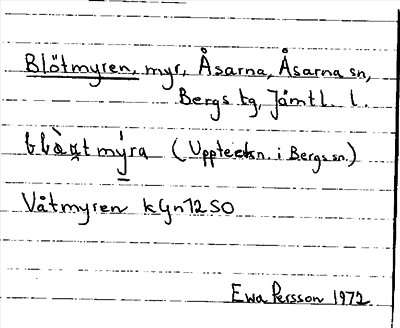 Blötmyren, myr, Åsarna, Åsarna sn,
Bergs tg, Jämtl. l.
mýra (Uppteckn. i Bergs sn.)
Våtmyren kGn 12 SO
Ewa Persson 1972